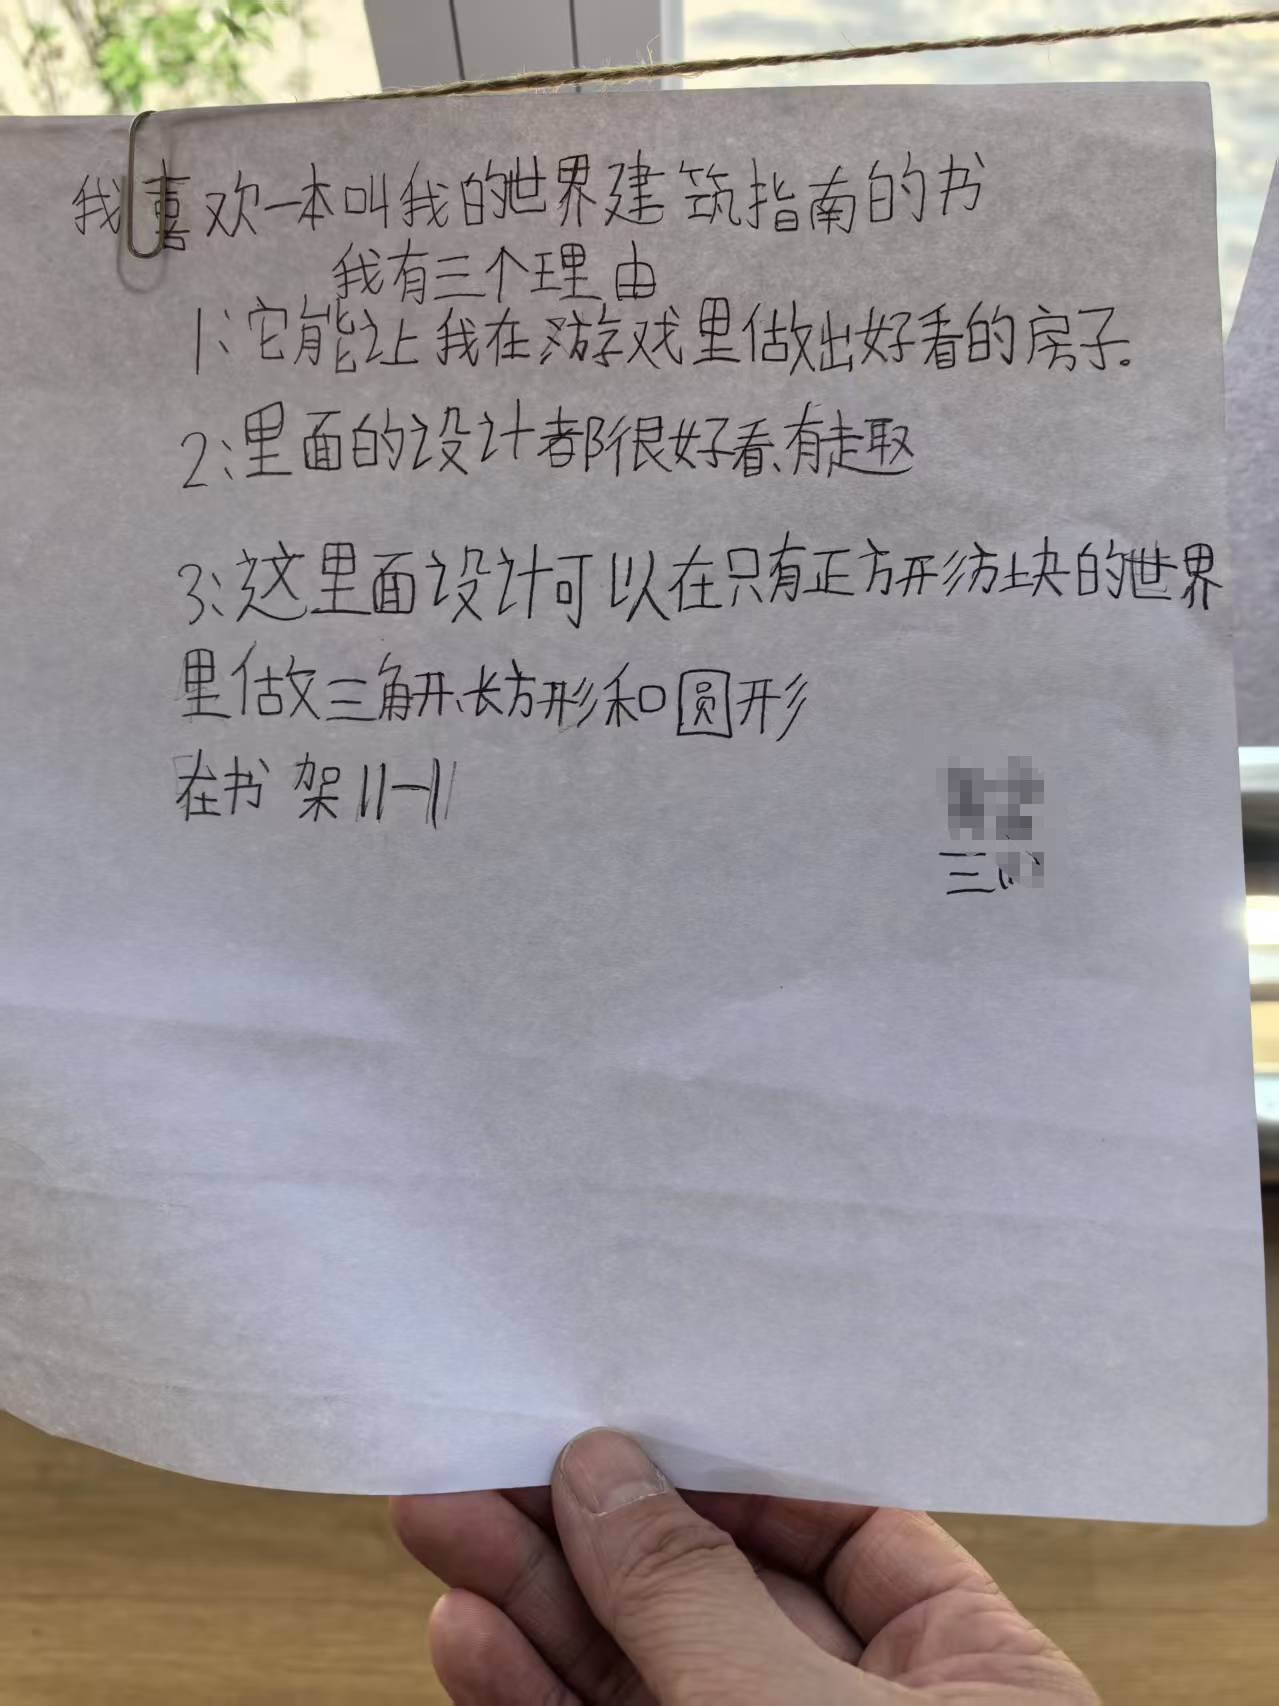 我喜欢一本叫我的世界建筑指南的书
我有三个理由
1:它能让我在游戏里做出好看的房子。
2:里面的设计都很好看、有趣
3:这里面设计可以在只有正方形方块的世界
里做三角形、长方形和圆形
在书架11-11
三